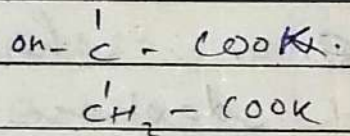 OH - C - COOK.
CH₂ - COOK